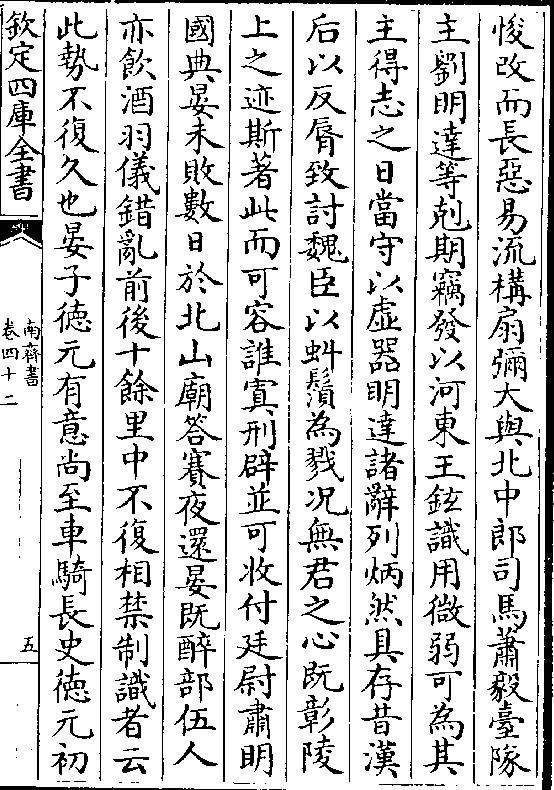 悛改而長惡易流構扇彌大與北中郎司馬蕭毅臺隊
主劉明達等剋期竊發以河東王鉉識用微弱可為其
主得志之日當守以虛器明達諸辭列炳然具存昔漢
后以反脣致討魏臣以虯鬚為戮况無君之心既彰陵
上之迹斯著此而可容誰寘刑辟並可收付廷尉肅明
國典晏未敗數日於北山廟答賽夜還晏既醉部伍人
亦飲酒羽儀錯亂前後十餘里中不復相禁制識者云
此勢不復久也晏子徳元有意尚至車騎長史徳元初
欽定四庫全書
南齊書
卷四十二
五